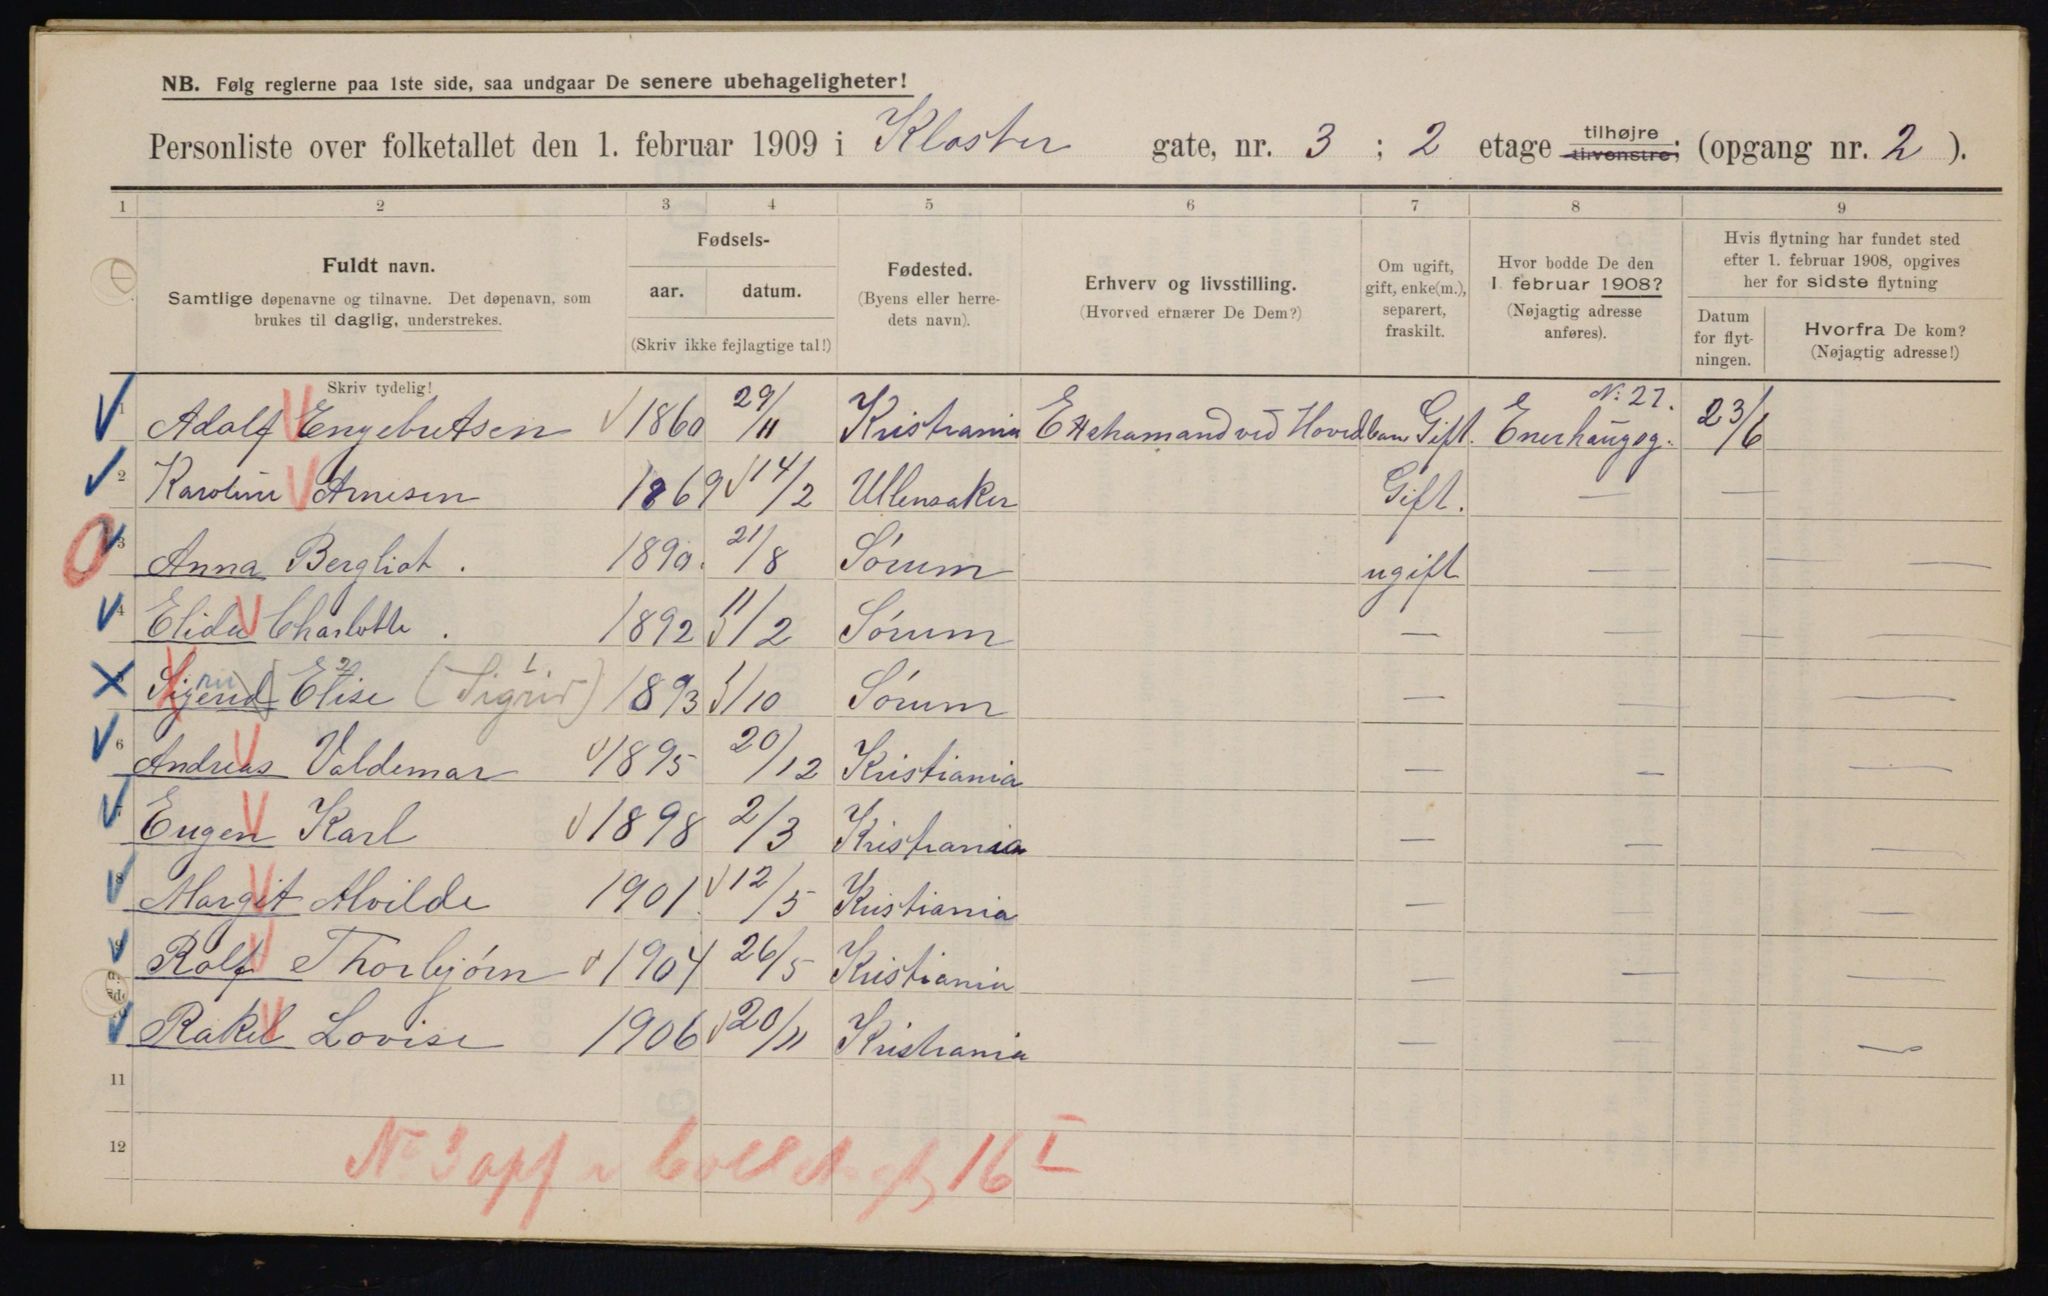 NB. Følg reglerne paa 1ste side, saa undgaar De senere ubehageligheter!
Personliste over folketallet den 1. februar 1909 i Kloster gate, nr. 3 ; 2 etage tilhøjre tilvenstre; (opgang nr. 2 ).
1 2 3 4 5 6 7 8 9
Fuldt navn.
Samtlige døpenavne og tilnavne. Det døpenavn, som
brukes til daglig, understrekes.
Fødsels-
aar. datum.
(Skriv ikke fejlagtige tal!)
Fødested.
(Byens eller herre-
dets navn).
Erhverv og livsstilling.
(Hvorved ernærer De Dem?)
Om ugift,
gift, enke(m.),
separert,
fraskilt.
Hvor bodde De den
1. februar 1908?
(Nøjagtig adresse
anføres).
Hvis flytning har fundet sted
efter 1. februar 1908, opgives
her for sidste flytning
Datum
for flyt-
ningen.
Hvorfra De kom?
(Nøjagtig adresse!)
Skriv tydelig!
1 Adolf Engebretsen 1860 29/11 Kristiania Extramand ved Hovedban Gift. Enerhaugsg. No 27. 23/6
2 Karoline Arnesen 1869 14/2 Ullensaker Gift. — —
3 Anna Bergliot. 1890. 21/8 Sórum ugift — — —
4 Elida Charlotte. 1892 11/2 Sórum — — — —
Elise 2 (Sigrid) 1 1893 /10 Sórum — — —
6 Andreas Valdemar 1895 20/12 Kristiania — — —
7 Eugen Karl 1898 2/3 Kristiania — — —
8 Margit Alvilde 1901. 12/5 Kristiania — — —
9 Rolf Thorbjórn 1904 26/5 Kristiania — — —
Rakel Lovise 1906 20/11 Kristiania — — —
11
12
No 3 opg 16 I